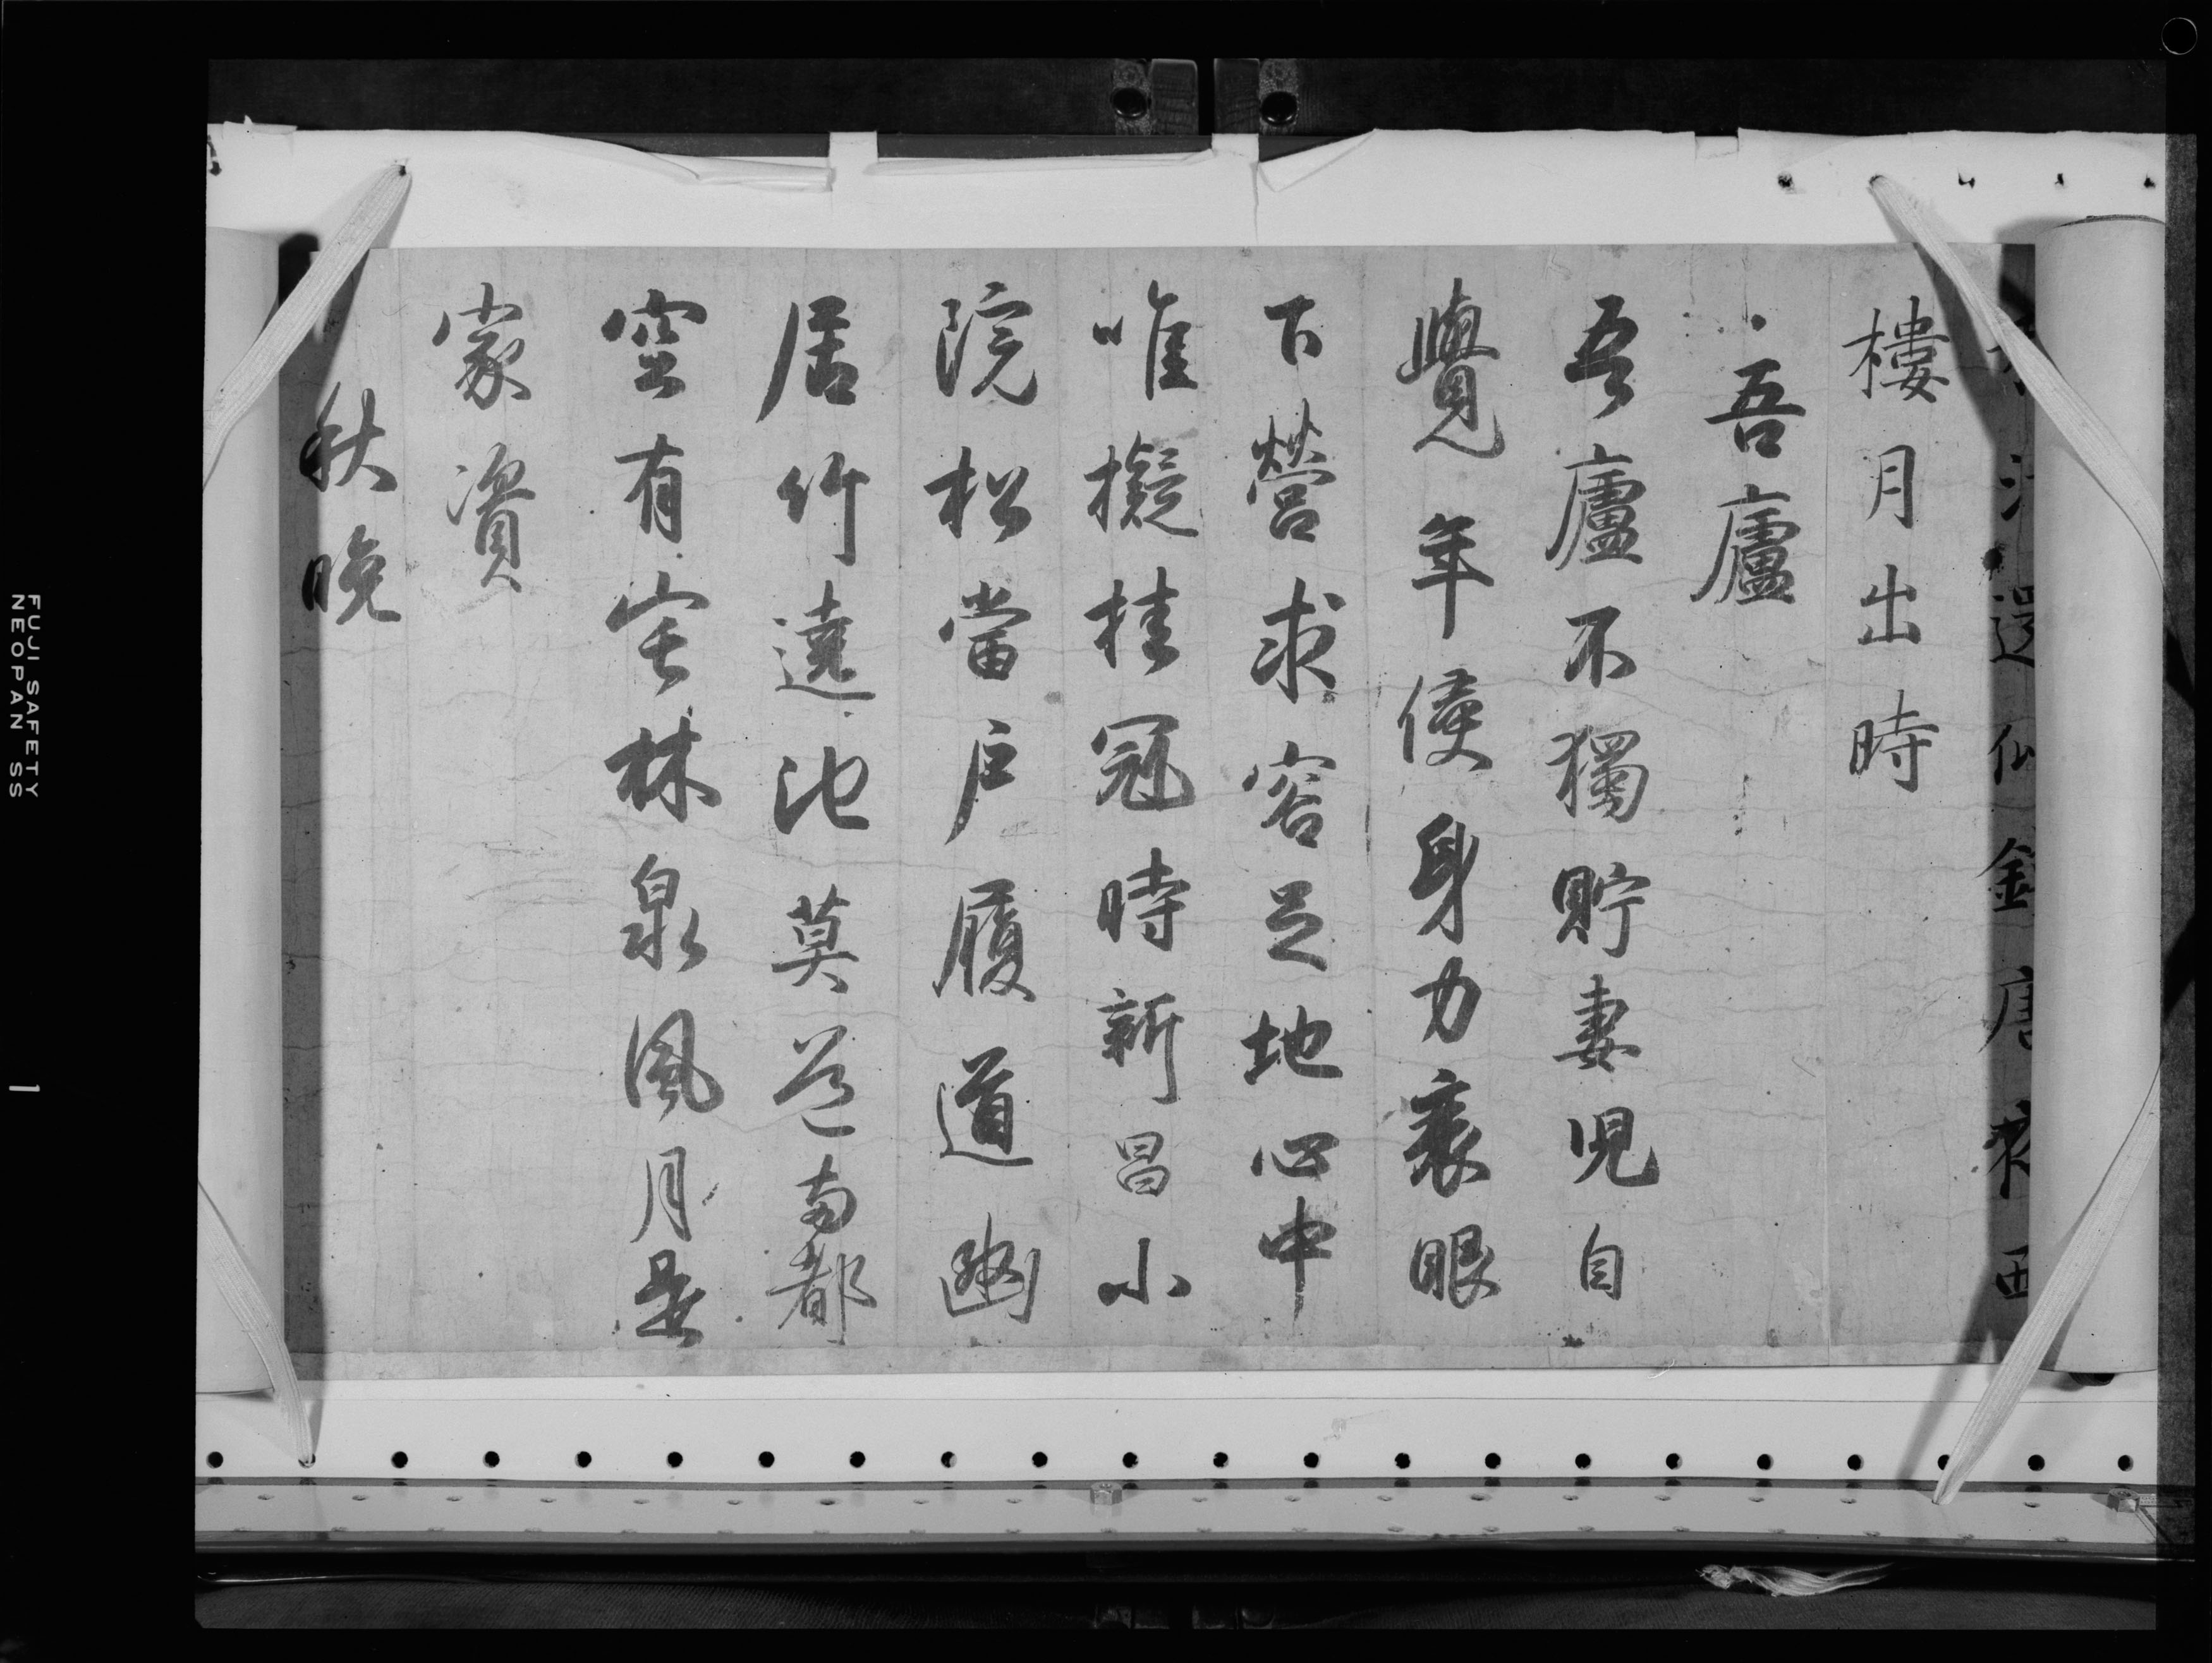 江還似錢唐夜西
樓月出時
吾廬
吾廬不獨貯妻児自
覺年侵身力衰眼
下營求容足地心中
唯擬挂冠時新昌小
院松當戶履道幽
居竹遶池莫道兩都
空有宅林泉風月是
家資
秋晚
FUJI SAFETY
NEOPAN SS
1